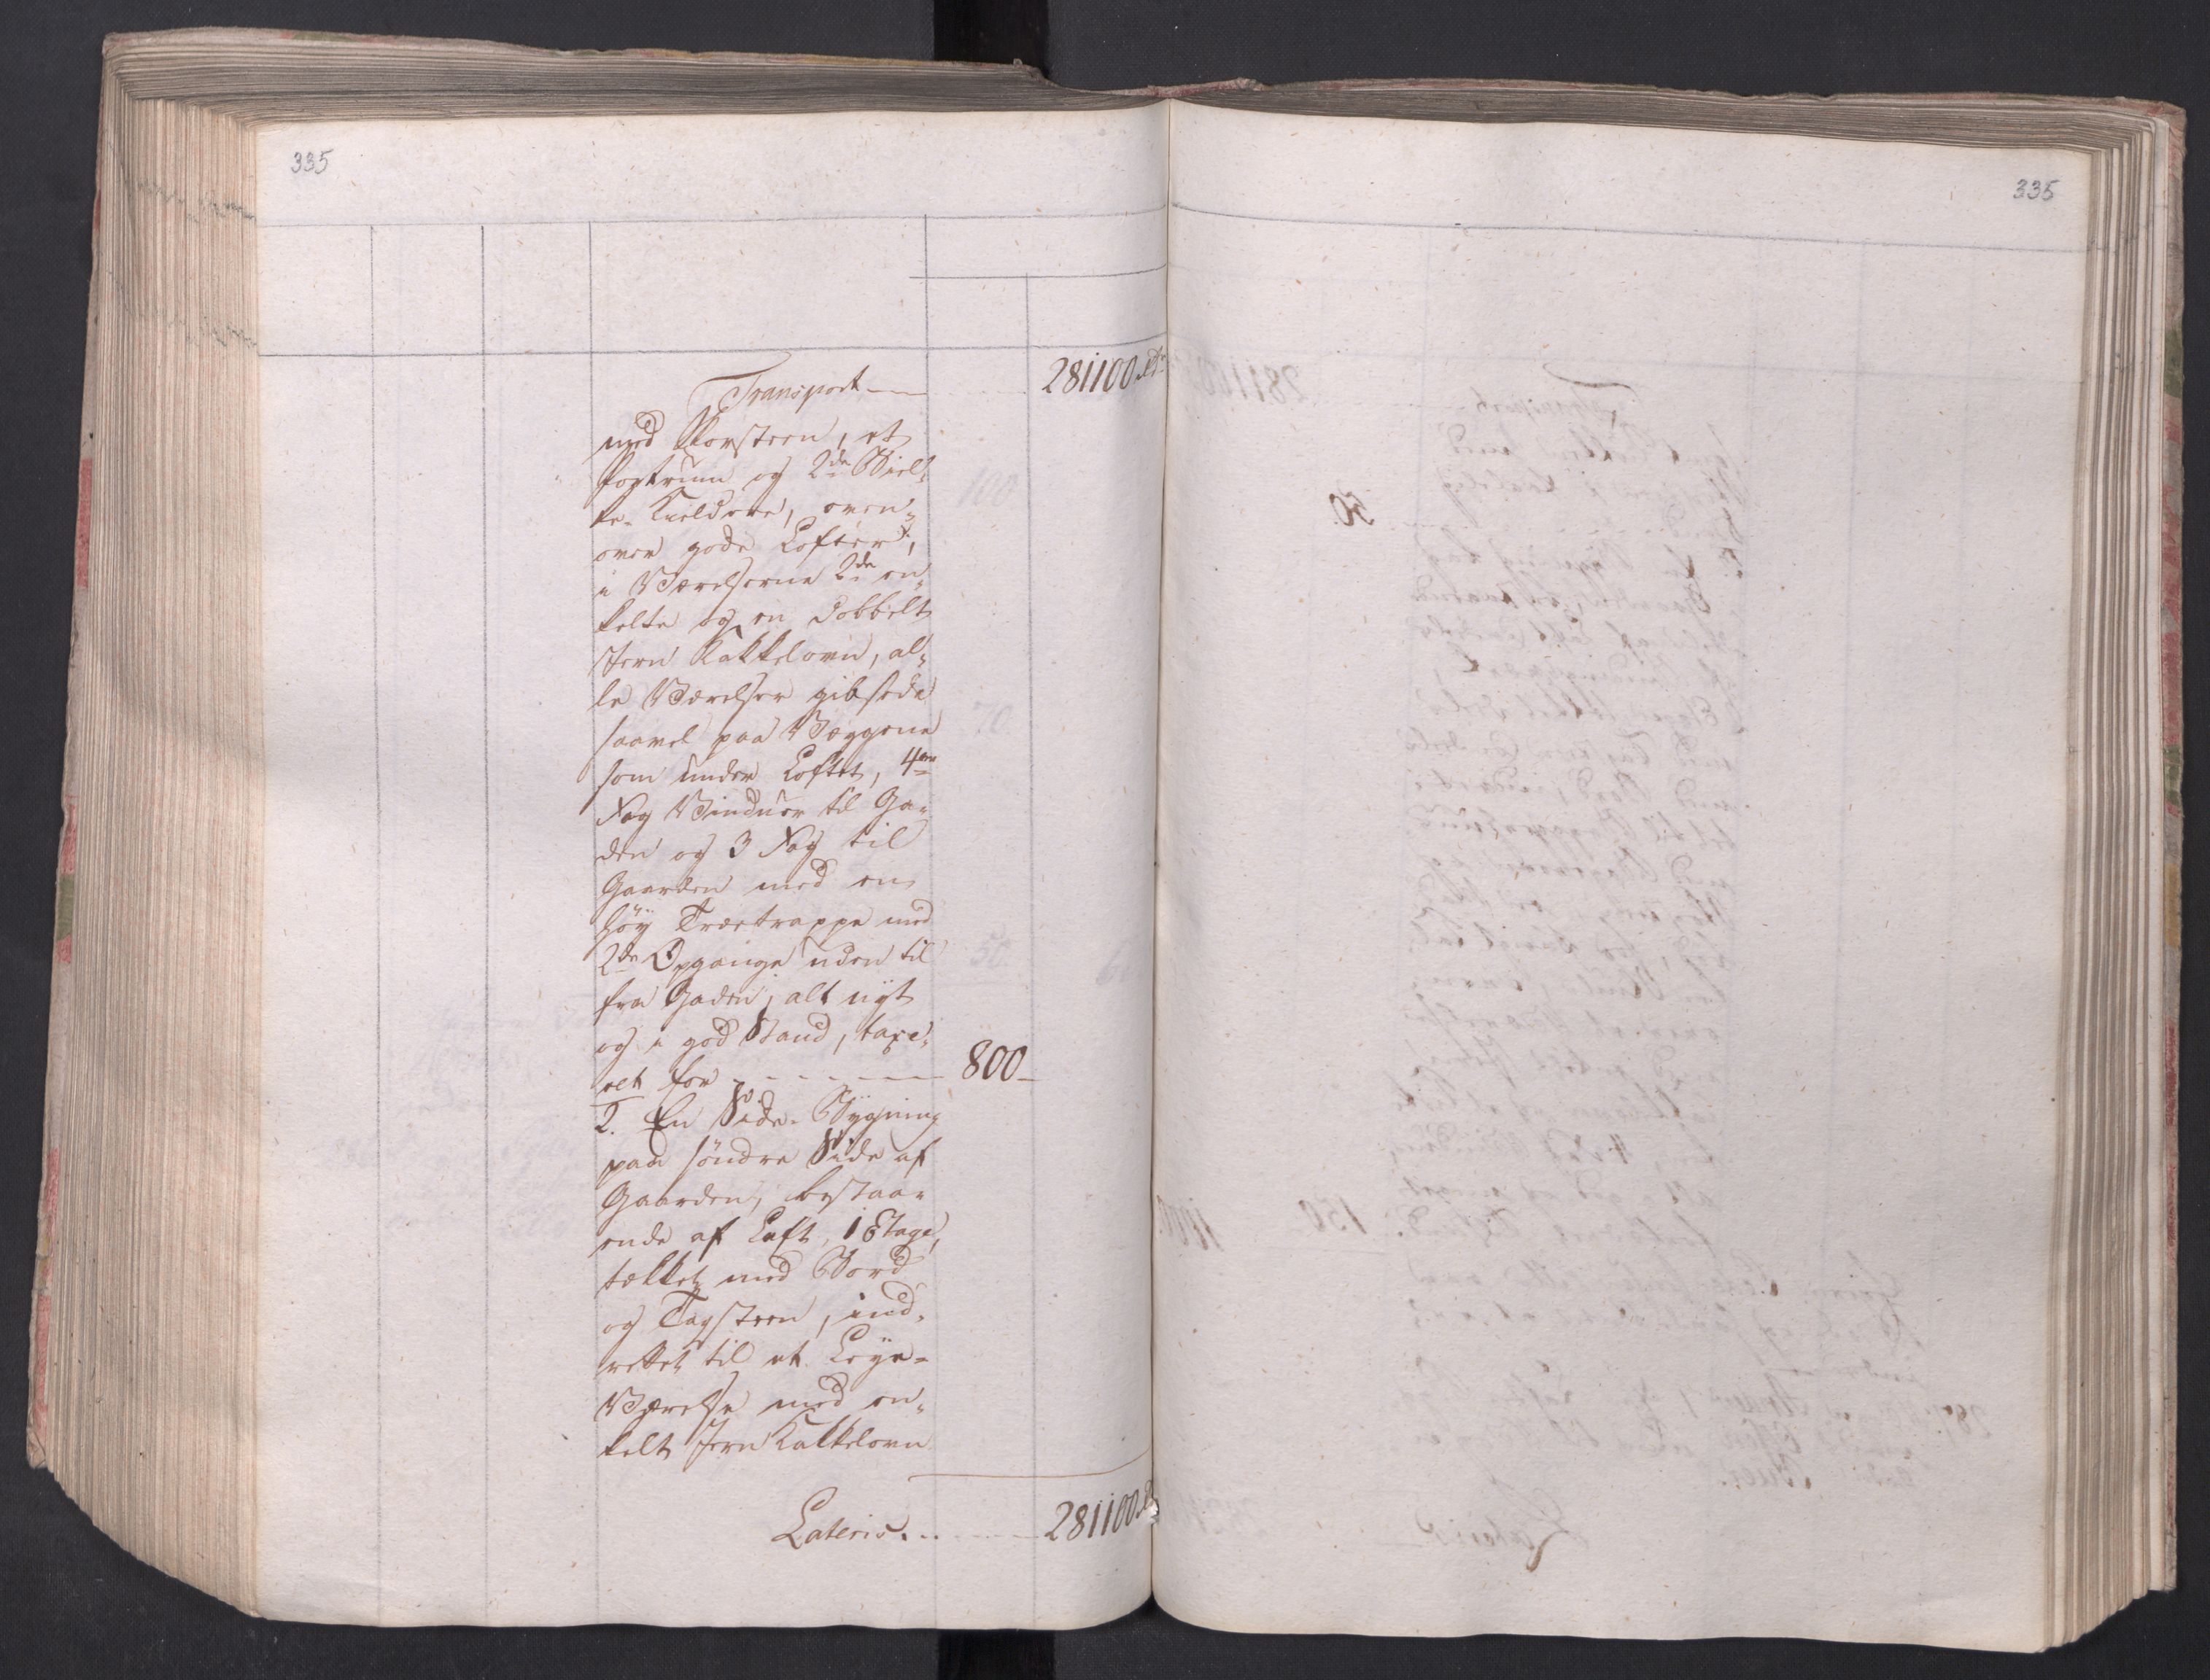 335
335
Transport 281100 Rdr
med Skorsteen, et
Portrum og 2de Biel-
ke-Kieldere, oven-
over gode Lofter,
i Værelserne 2de en-
kelte og en dobbelt
Jern Kakkelovn, al-
le Værelser gibsede
saavel paa Væggene
som under Loftet, 4re
Fag Vinduer til Ga-
den og 3 Fag til
Gaarden med en
høy Trætrappe med
2de Opgange uden til
fra Gaden, alt nyt
og i god Stand, taxe-
ret for 800
2. En Side-Bygning
paa søndre Side af
Gaarden, bestaa-
ende af Laft, 1 Etage,
tækket med Bord
og Tagsteen, ind-
rettet til et Leye-
Værelse med en-
kelt Jern Kakkelovn
Lateris 281100 Rd